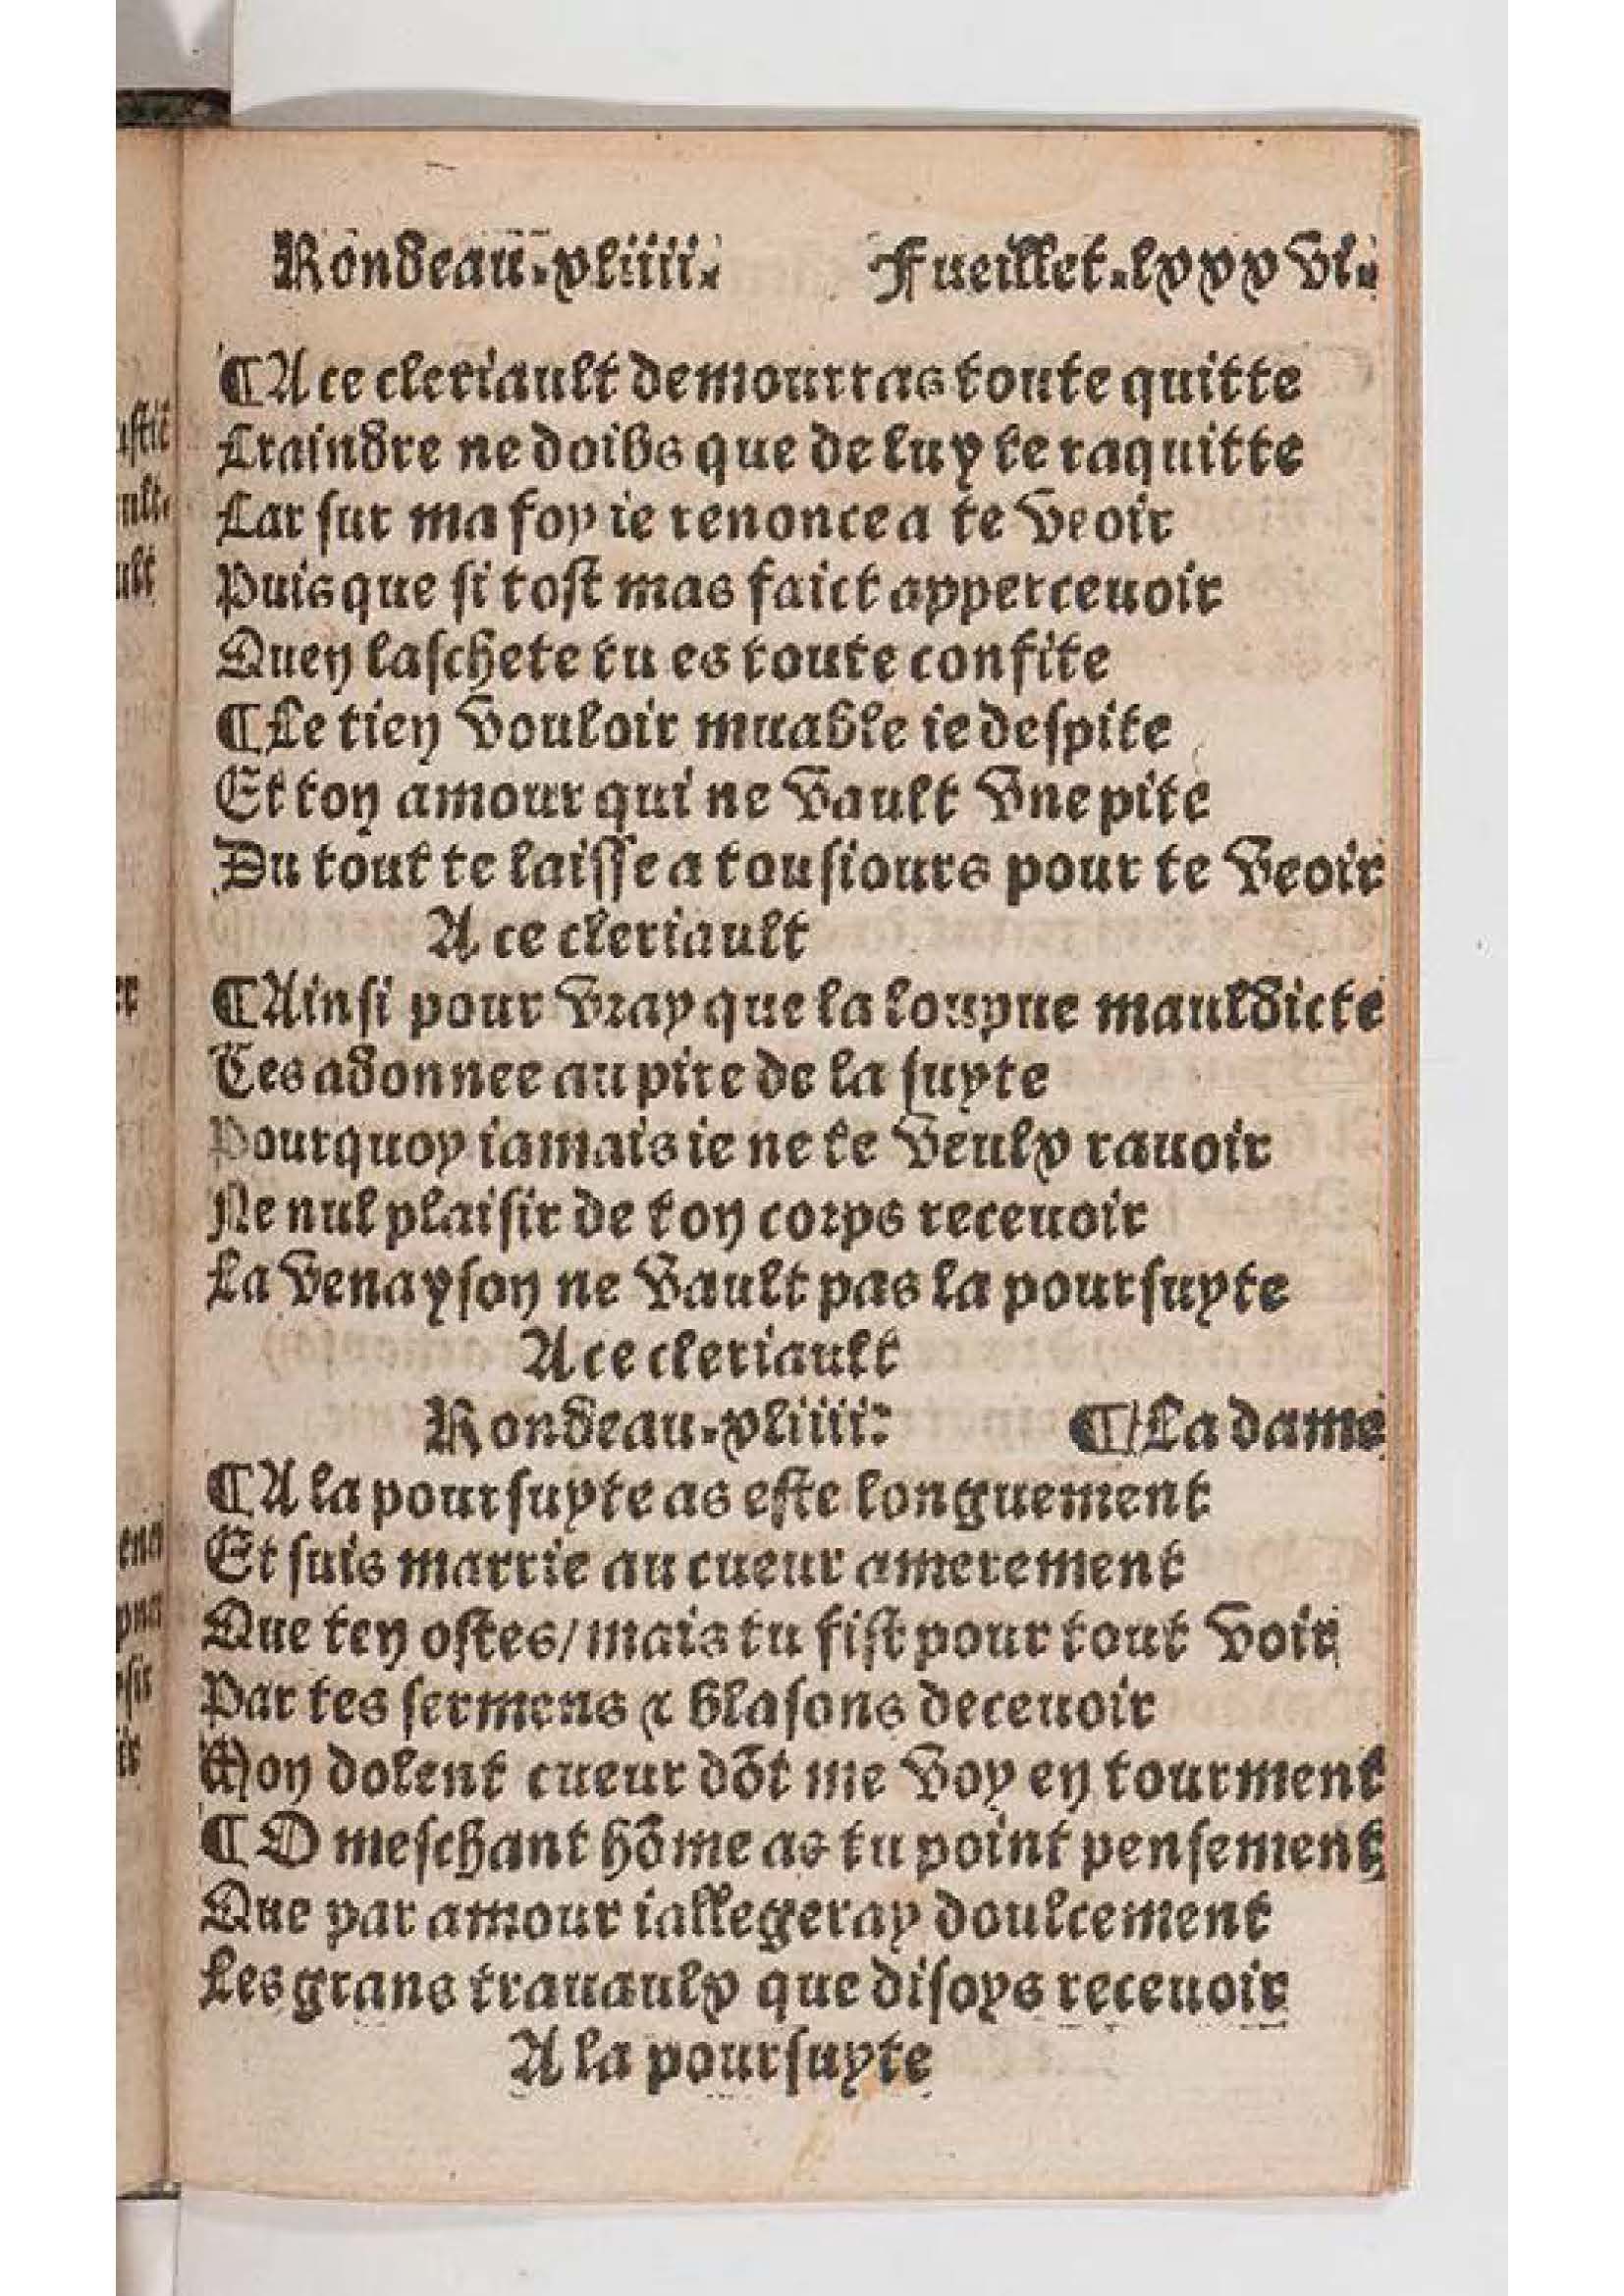 Rondeau.xliiii. Fueillet.lxxxvi.
¶A ce cleriault demourras toute quitte
Craindre ne doibs que de luy te raquitte
Car sur ma foy ie renonce a te veoir
Puis que si tost mas faict appercevoir
Quen laschete tu es toute confite
¶Le tien vouloir muable ie despite
Et ton amour qui ne vault vne pite
Du tout te laisse a tousiours pour te veoir
A ce cleriault
¶Ainsi pour vray que la louyue mauldicte
Tes adonnee au pire de la suyte
Pourquoy iamais ie ne te veulx rauoir
Ne nul plaisir de ton corps receuoir
La venayson ne vault pas la poursuyte
A ce cleriault
Rondeau.xliiii. ¶La dame
¶A la poursuyte as este longuement
Et suis marrie au cueur amerement
Que ten ostes/mais tu fist pour tout voir
Par tes sermens & blasons deceuoir
Mon dolent cueur dōt me voy en tourment
¶O meschant hōme as tu point pensement
Que par amour iallegeray doulcement
Les grans trauaulx que disoys receuoir
A la poursuyte